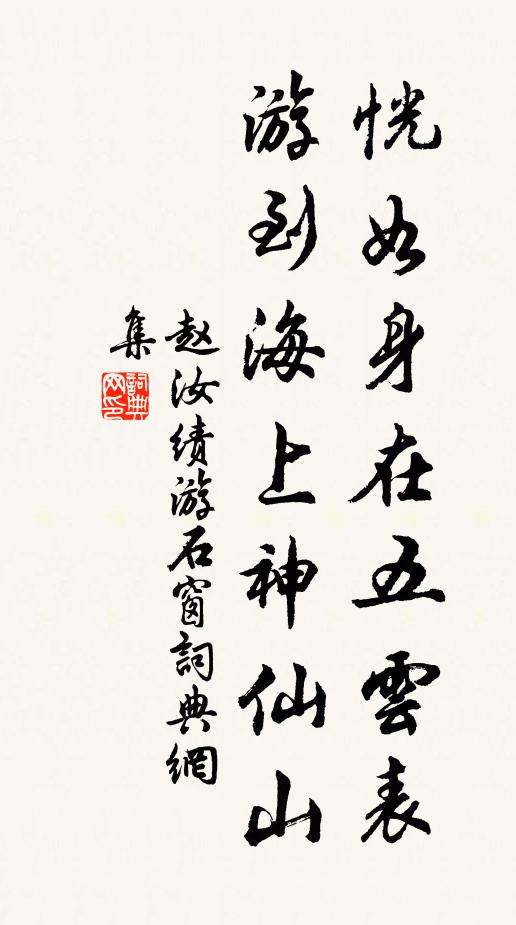 恍如身在五雲表
游到海上神仙山
赵汝绩游石窗詞典網
集
詞典网印